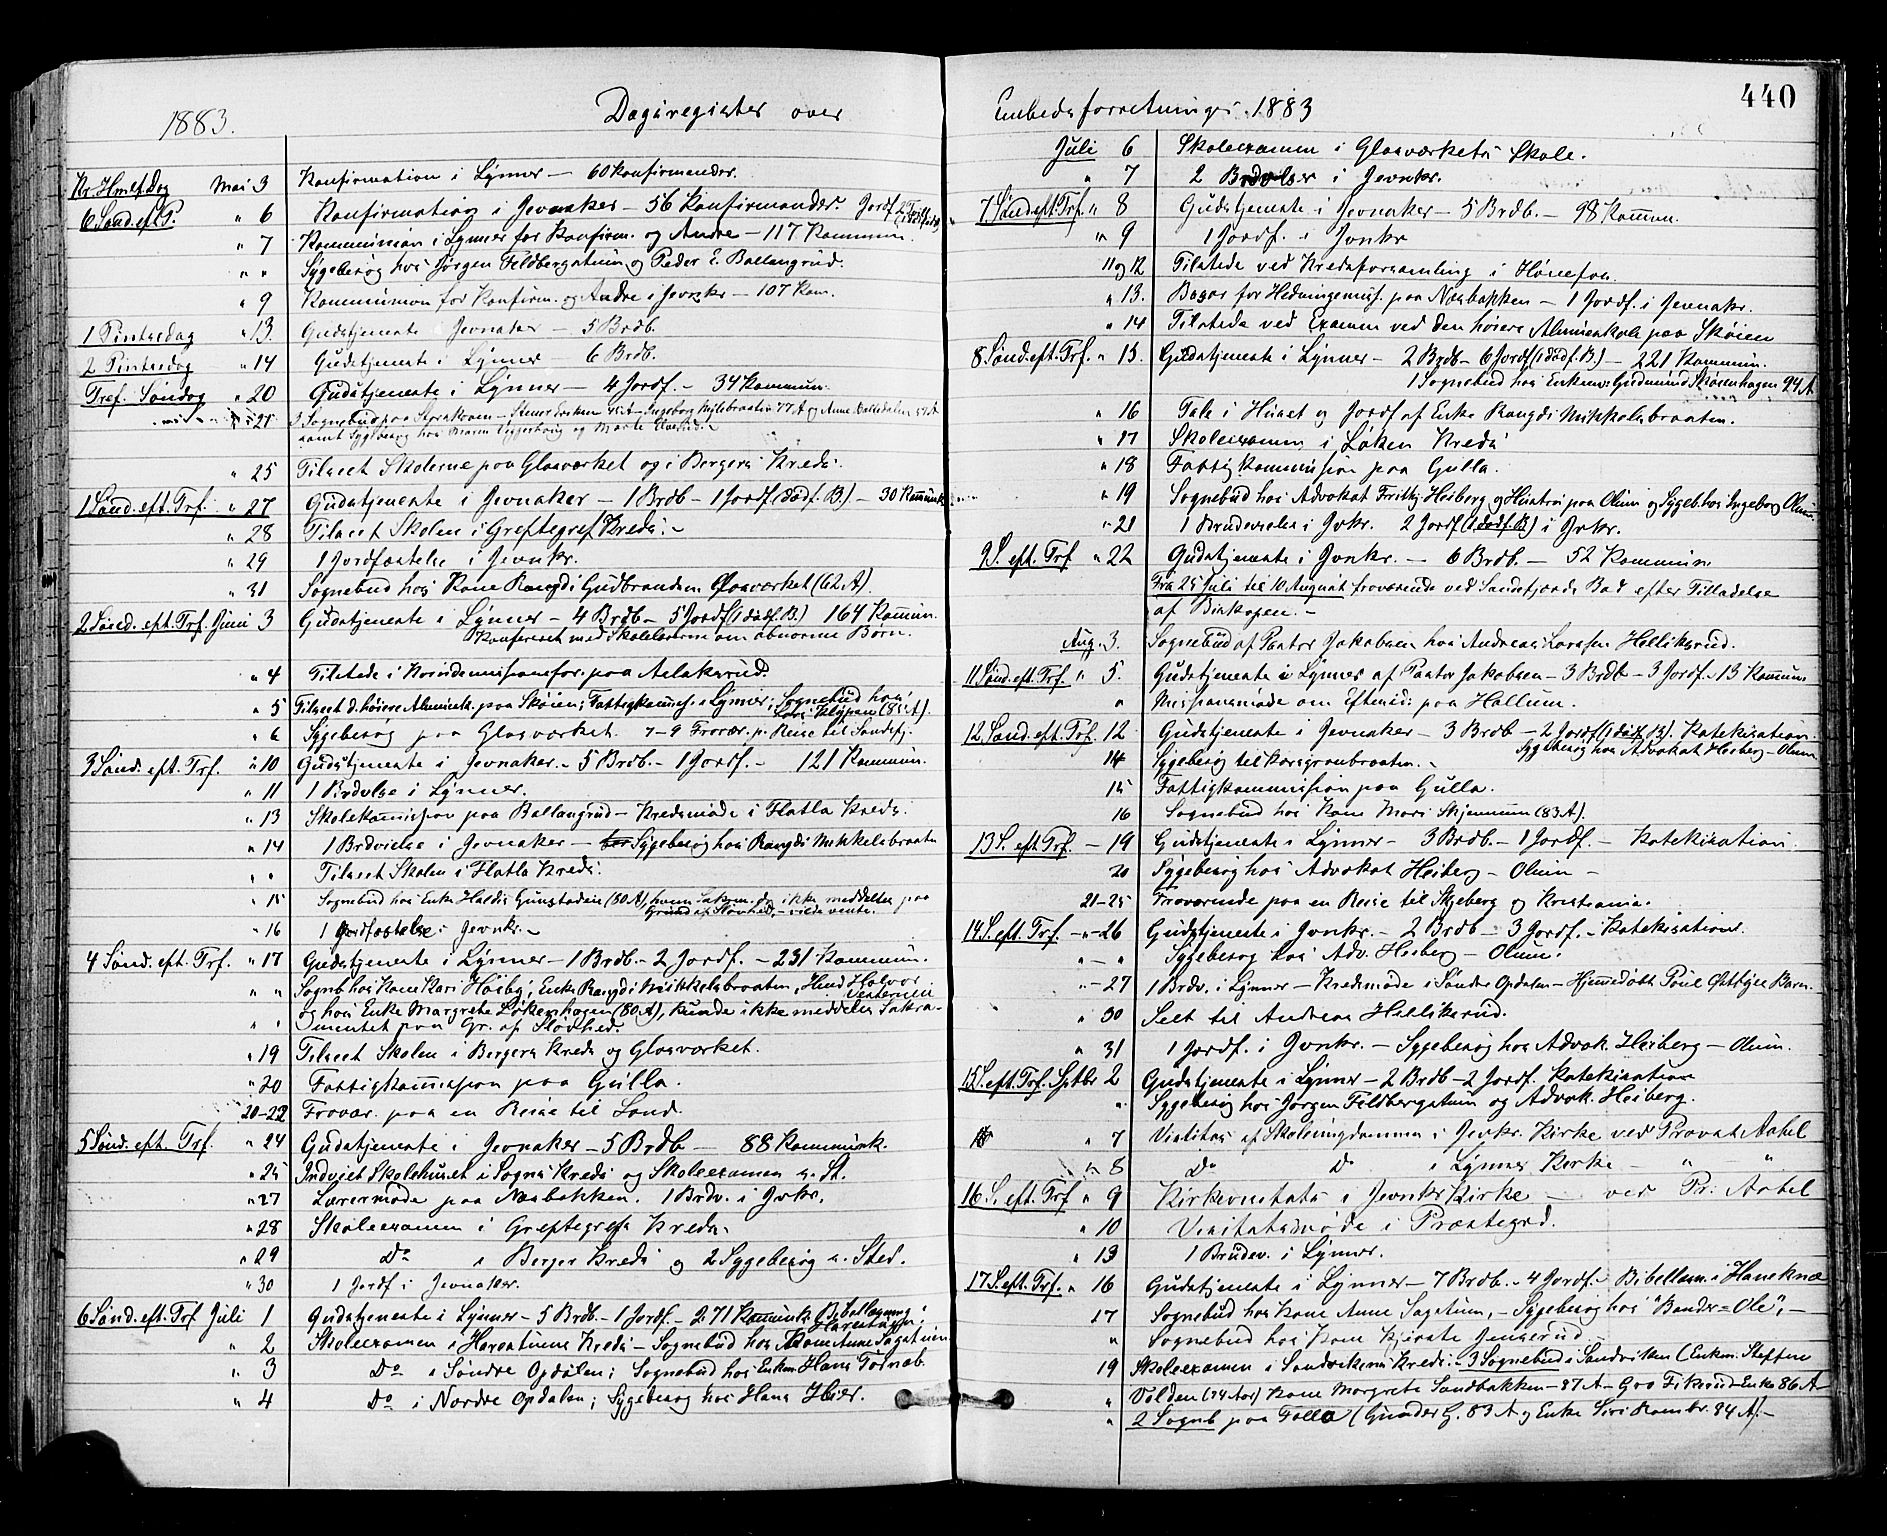 440
1883.
Dagsregister over
Kr. Hmlf.Dag Mai 3 Konfirmation i Lynner — 60 Konfirmander.
6 Sønd. ef. P. " 6 Konfirmation i Jevnaker — 56 Konfirmander. Jordf.
" 7 Kommunion i Lynner for Konfirm. og Andre — 117 Kommun.
" " Sygebesøg hos Jørgen Feldbergstuen og Peder E. Ballangrud.
" 9 Kommunion for Konfirm. og Andre i Jevnkr — 107 Kom.
1 Pintsedag " 13. Gudstjeneste i Jevnaker — 5 Brdb.
2 Pintsedag " 14 Gudstjeneste i Lynner — 6 Brdb.
Tref. Søndag " 20 Gudstjeneste i Lynner — 4 Jordf. — 34 Kommun.
" 21 3 Sognebud paa
samt Sygebesøg hos Maren og Marte
" 25 Tilseet Skolerne paa Glasværket og i Bergers Kreds.
1 Sønd. eft. Trf. " 27 Gudstjeneste i Jevnaker — 1 Brdb — 1 Jordf. (dødf. B.) — 30 Kommunk.
" 28 Tilseet Skolen i Greftegref Kreds. —
" 29 1 Jordfæstelse i Jevnkr.
" 31 Sognebud hos Kone Rangdi Gudbrandsen Glasværket (62 A).
2 Sønd. eft. Trf. Juni 3 Gudstjeneste i Lynner — 4 Brdb — 5 Jordf (1 dødf. B.) 164 Kommun.
Konfereret med Skolelærerne om abnorme Børn.
" 4 Tilstede i Kvindemissionsfor. paa Aslaksrud.
" 5 Tilseet d. høiere Almuesk. paa Skøien; Fattigkommis. i Lynner; Sognebud hos
Lars Klypen (85 A).
" 6 Sygebesøg paa Glasværket. 7–9 Fravær. p. Reise til Sandefj.
3 Sønd. eft. Trf. " 10 Gudstjeneste i Jevnaker. — 5 Brdb. — 1 Jordf. — 121 Kommun.
" 11 1 Brdvlse i Lynner.
" 13 Skolekommission paa Ballangrud — Kredsmøde i Flatla Kreds.
" 14 1 Brdvielse i Jevnaker — Sygebesøg hos Rangdi Mikkelsbraaten
" " Tilseet Skolen i Flatla Kreds.
" 15 Sognebud hos Enke Haldis Gunstaden (80 A), hvem Sakram. jeg ikke meddelte paa
Grund af Sløvhed, — vilde vente.
" 16 1 Jordfæstelse i Jevnkr. —
4 Sønd. eft. Trf. " 17 Gudstjeneste i Lynner — 1 Brdb. — 2 Jordf. — 231 Kommun.
" " Sognb hos Kone Kari Høiby; Enke Rangdi Mikkelsbraaten, Husmd Halvor
og hos Enke Margrete Løkenhagen (80 A), kunde ikke meddeles Sakra-
" " mentet paa Gr. af Sløvhed.
" 19 Tilseet Skolen i Bergers Kreds og Glasværket.
" 20 Fattigkommission paa Gulla.
20–22 Fravær. paa en Reise til Land.
5 Sønd. eft. Trf. " 24 Gudstjeneste i Jevnaker — 5 Brdb — 88 Kommunik.
" 25 Indviet Skolehuset i Sogns Kreds og Skoleexamen s. St.
" 27 Lærermøde paa Næsbakken. 1 Brdv. i Jvkr.
" 28 Skoleexamen i Greftegrefs Kreds.
" 29 Do i Berger Kreds og 2 Sygebesøg s. Sted.
" 30 1 Jordf i Jevnaker.
6 Sønd. eft. Trf Juli 1 Gudstjeneste i Lynner — 5 Brdb. — 1 Jordf. — 271 Kommunk.
" 2 Skoleexamen i Harestuens Kreds — Sognebud hos Kone Anne Sagstuen
" 3 Do i Søndre Opdalen; Sognebud hos Enkm. Hans
" 4 Do i Nordre Opdalen; Sygebesøg hos Hans Hier.
Embedsforretninger 1883
Juli 6 Skoleexamen i Glasværkets Skole.
" 7 2 Brdvlser i Jevnkr.
7 Sønd. eft. Trf. " 8 Gudstjeneste i Jevnaker — 5 Brdb. — 98 Kommun.
" 9 1 Jordf. i Jvnkr
11 og 12 Tilstede ved Kredsforsamling i Hønefos.
" 13. Basar for Hedningemis. paa Næsbakken — 1 Jordf. i Jevnakr.
" 14 Tilstede ved Examen ved den høiere Almueskole paa Skøien
8. Sønd. eft. Trf. " 15. Gudstjeneste i Lynner — 2 Brdb — 6 Jordf (1 dødf. B.) — 221 Kommun.
1 Sognebud hos Enkem: Gudmund Skøienhagen 94 A
" 16 Tale i Huset og Jordf af Enke Rangdi Mikkelsbraaten.
" 17 Skoleexamen i Løken Kreds
" 18 Fattigkommission paa Gulla.
" 19 Sognebud hos Advokat Frithj. Heiberg og Hustru paa Olum og Sygeb. hos Ingeborg Olum.
" 21 1 Brudevielse i Jvkr. 2 Jordf (1 dødf. B) i Jvkr.
9 S. eft. Trf " 22 Gudstjeneste i Jvnkr. — 6 Brdb. — 52 Kommun.
Fra 25 Juli til 10 August fraværende ved Sandefjords Bad efter Tilladelse
af Biskopen. —
Aug. 3. Sognebud af Pastor Jakobsen hos Andreas Larsen Helliksrud.
11 Sønd. eft. Trf. " 5. Gudstjeneste i Lynner af Pastor Jakobsen — 3 Brdb — 3 Jordf. — 13 Kommun.
" Missionsmøde om Eftmid: paa Hallum.
12 Sønd. eft. Trf. 12 Gudstjeneste i Jevnaker — 3 Brdb — 2 Jordf (1 dødf. B). Katekisation.
Sygebesøg hos Advokat Heiberg — Olum
14 Sygebesøg til Korsgranbraaten. —
15 Fattigkommission paa Gulla.
16 Sognebud hos Kone Mari Skjennum (83 A).
13 S. eft Trf. — 19 Gudstjeneste i Lynner — 3 Brdb. — 1 Jordf. — Katekisation.
20 Sygebesøg hos Advokat Heiberg — Olum —
21–25 Fraværende paa en Reise til Skjeberg og Kristiania.
14 S. eft. Trf. — " — 26 Gudstjeneste i Jvnkr. — 2 Brdb — 3 Jordf. — Katekisation.
" — " Sygebesøg hos Adv. Heiberg — Olum.
" — 27 1 Brdv. i Lynner — Kredsmøde i Søndre Opdalen — Hjemmedøbt Poul Østbyes Barn.
" 30 Seet til Andreas Helliksrud.
" 31 1 Jordf. i Jvnkr. — Sygebesøg hos Advok. Heiberg — Olum.
15 S. eft. Trf. Sptbr 2 Gudstjeneste i Lynner — 2 Brdb — 2 Jordf. Katekisation
" Sygebesøg hos Jørgen Feldbergstuen og Advok. Heiberg.
" 7 Visitas af Skoleungdommen i Jevkr. Kirke ved Provst Astel
" 8 Do Do i Lynner Kirke — " "
16 S. eft. Trf " 9 Kirkevisitats i Jevnkr Kirke — ved Pr: Astel
" 10 Visitatsmøde i Præstegrd.
" 13 1 Brudev. i Lynner.
17 S. eft. Trf. " 16 Gudstjeneste i Lynner — 7 Brdb. — 4 Jordf. — Bibellæsn. i Haneknæ
17 Sognebud hos Kone Anne Sagstuen, — Sygebesøg hos "Bander=Ole", —
" Sognebud hos Kone Kjerste Jengerud. —
19 Skoleexamen i Sandvikens Kreds: — 3 Sognebud i Sandviken (Enkem. Steffen
" Velden (74 Aar) Kone Margrete Sandbakken — 87 A — Gro Fikerud Enke 86 A
" 2 Sognb paa Falla (Gunder G. 83 A og Enke Siri Rambr. 84 A). —